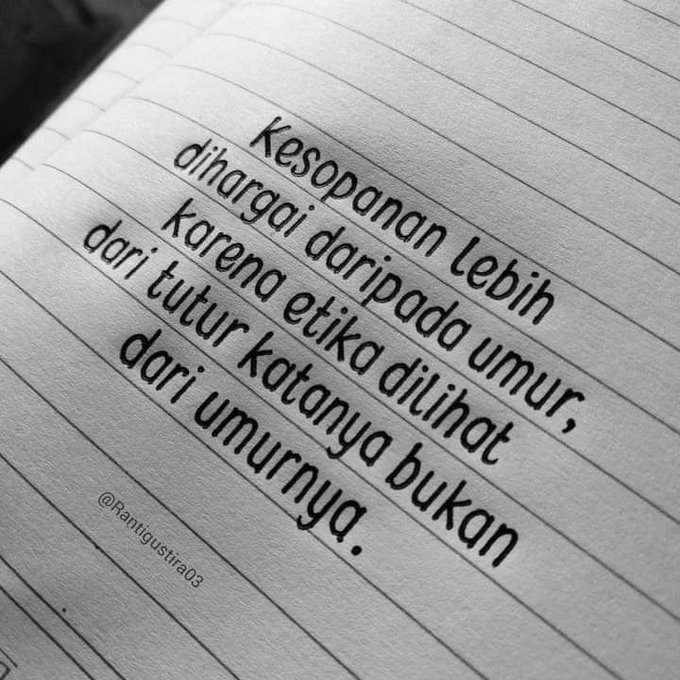 Kesopanan lebih
dihargai daripada umur,
karena etika dilihat
dari tutur katanya bukan
dari umurnya.
@Rantigustira03